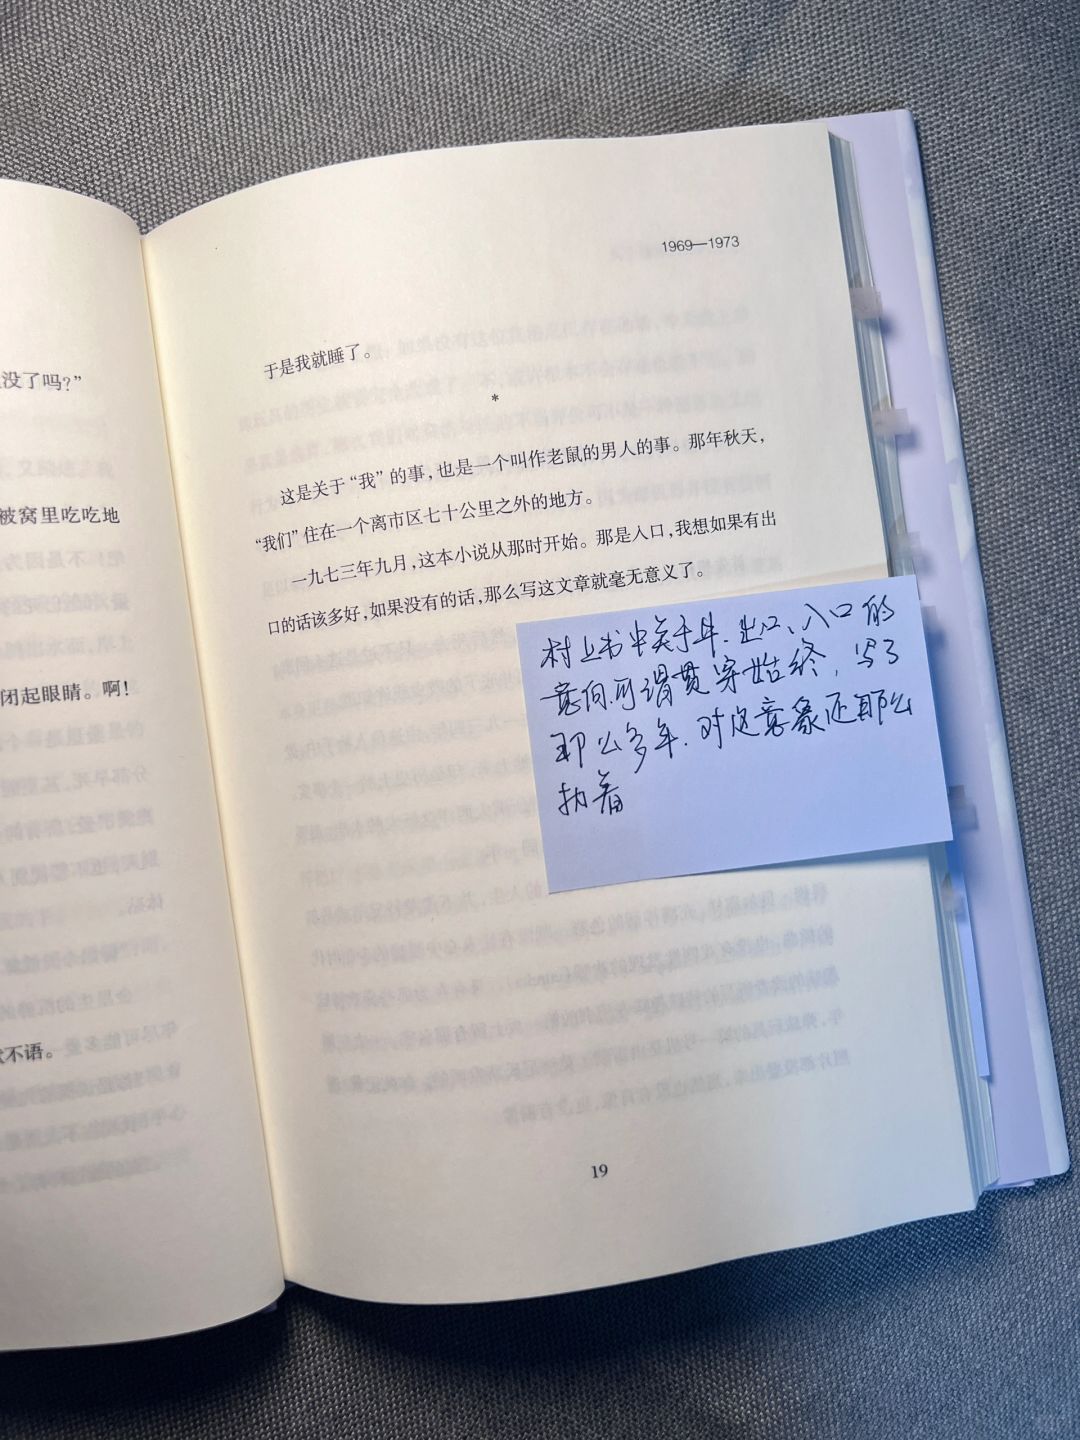 没了吗?”
被窝里吃吃地
闭起眼睛。啊!
不语。
1969—1973
于是我就睡了。
*
这是关于“我”的事,也是一个叫作老鼠的男人的事。那年秋天,
“我们”住在一个离市区七十公里之外的地方。
一九七三年九月,这本小说从那时开始。那是入口,我想如果有出
口的话该多好,如果没有的话,那么写这文章就毫无意义了。
村上书中关于井、出口、入口的
意向可谓贯穿始终,写了
那么多年,对这意象还那么
执着
19